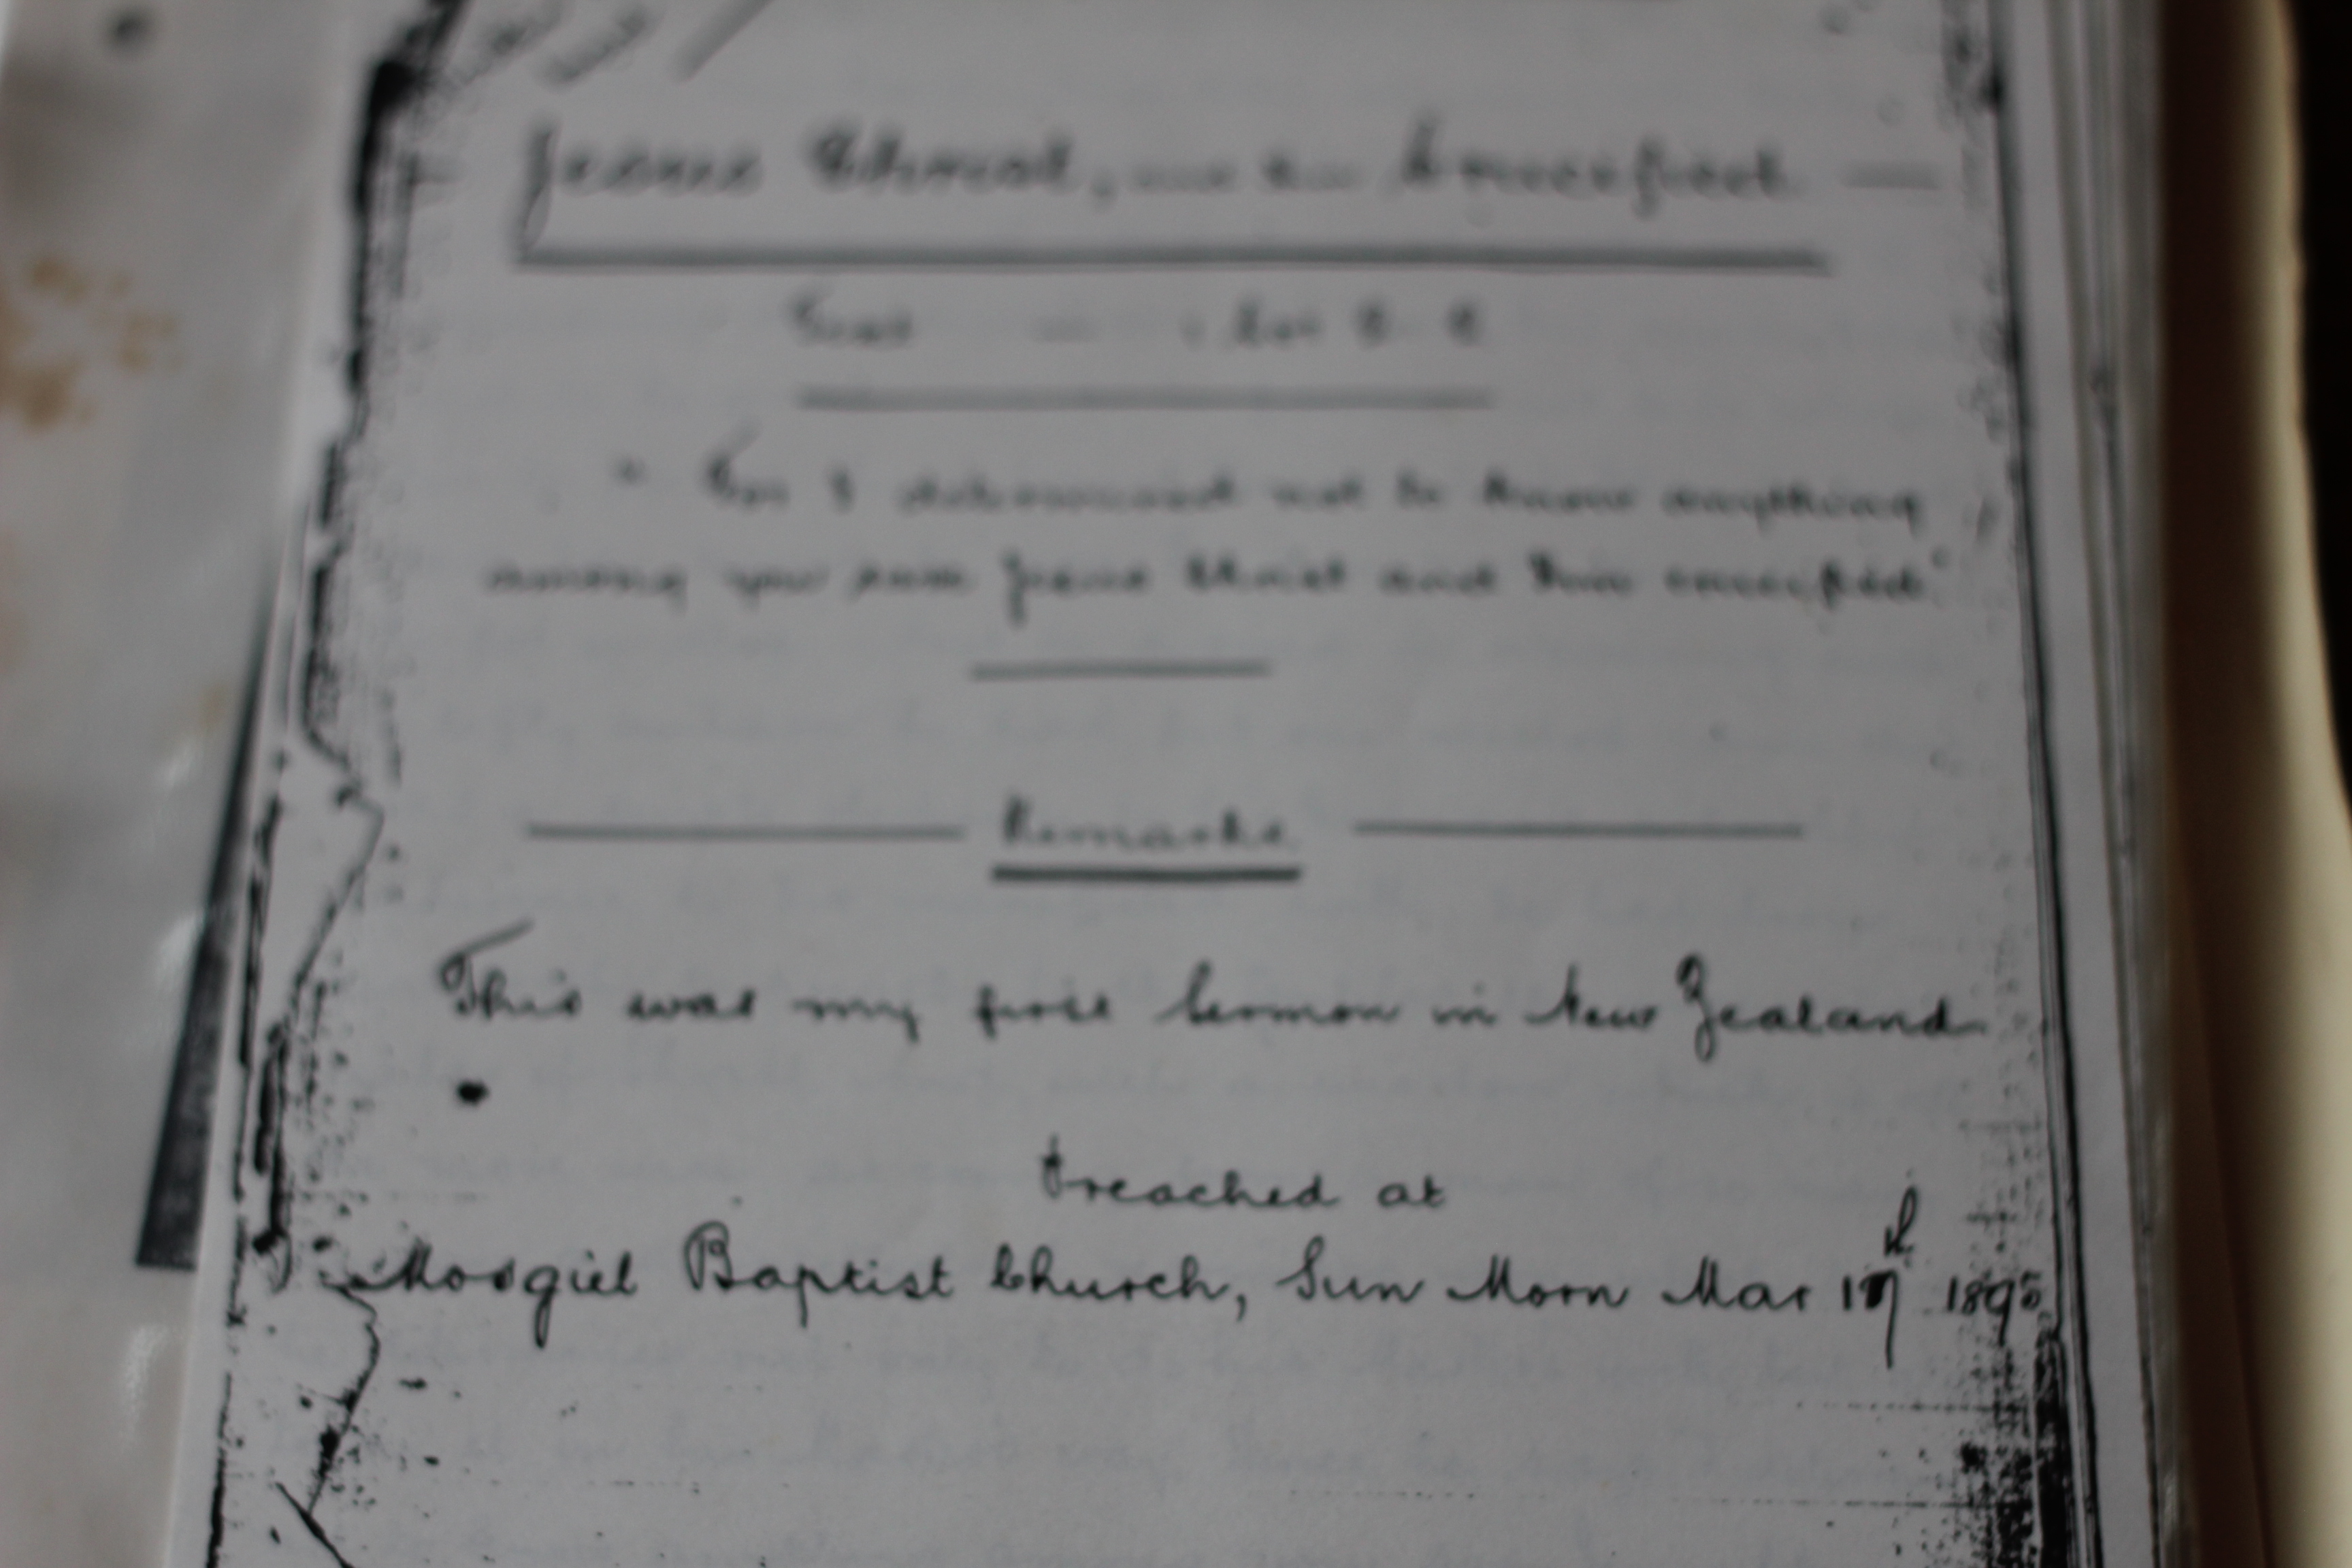 Jesus Christ, and Him Crucified —
Text — 1 Cor 2. 2
" For I determined not to know anything
among you save Jesus Christ and Him crucified."
Remarks
This was my first Sermon in New Zealand
Preached at
Mosgiel Baptist Church, Sun Morn Mar 17th 1895